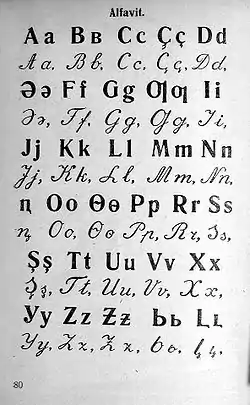 Alfavit.
Aa Bʙ Cc Çç Dd
Aa, Bʙ, Cc, Çç, Dd,
Əə Ff Gg Ƣƣ Ii
Əə, Ff, Gg, Ƣƣ, Ii,
Jj Kk Ll Mm Nn
Jj, Kk, Ll, Mm, Nn,
ꞑ Oo Ɵɵ Pp Rr Ss
ꞑ, Oo, Ɵɵ Pp, Rr, Ss,
Şş Tt Uu Vv Xx
Şş, Tt, Uu, Vv, Xx,
Yy Zz Ƶƶ Ьь
Yy, Zz, Ƶƶ, ьь,
80